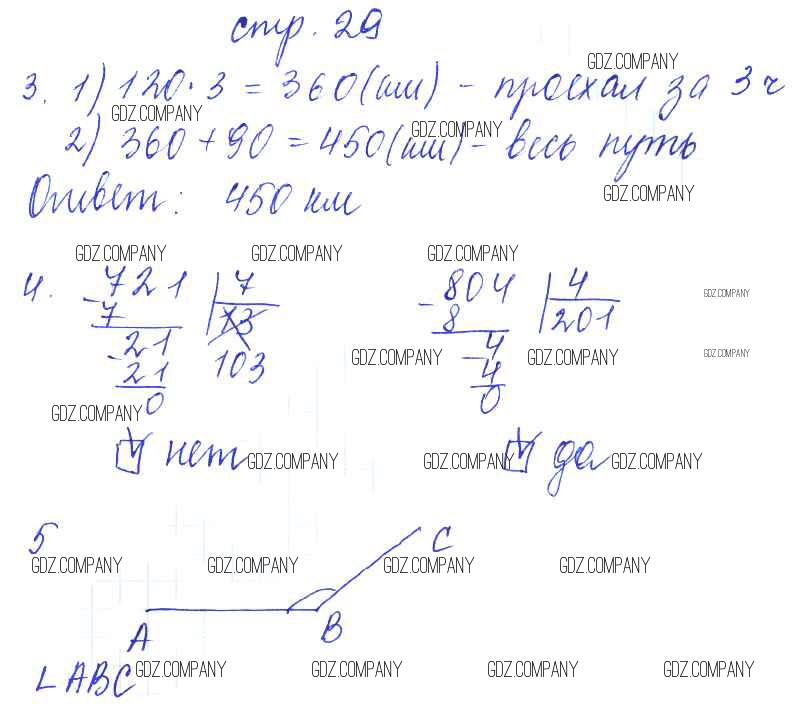 стр. 29
GDZ.COMPANY
3. 1) 120 · 3 = 360 (км) - проехал за 3 ч
GDZ.COMPANY GDZ.COMPANY
2) 360 + 90 = 450 (км) - весь путь
GDZ.COMPANY
Ответ: 450 км
GDZ.COMPANY GDZ.COMPANY GDZ.COMPANY
4. - 721 | 7 - 804 | 4 GDZ.COMPANY
7 13 8 201
- 21 103 GDZ.COMPANY - 4 GDZ.COMPANY GDZ.COMPANY
21 4
GDZ.COMPANY 0 0
нет GDZ.COMPANY GDZ.COMPANY да GDZ.COMPANY
5 C
GDZ.COMPANY GDZ.COMPANY GDZ.COMPANY GDZ.COMPANY
A B
∠ABC GDZ.COMPANY GDZ.COMPANY GDZ.COMPANY GDZ.COMPANY